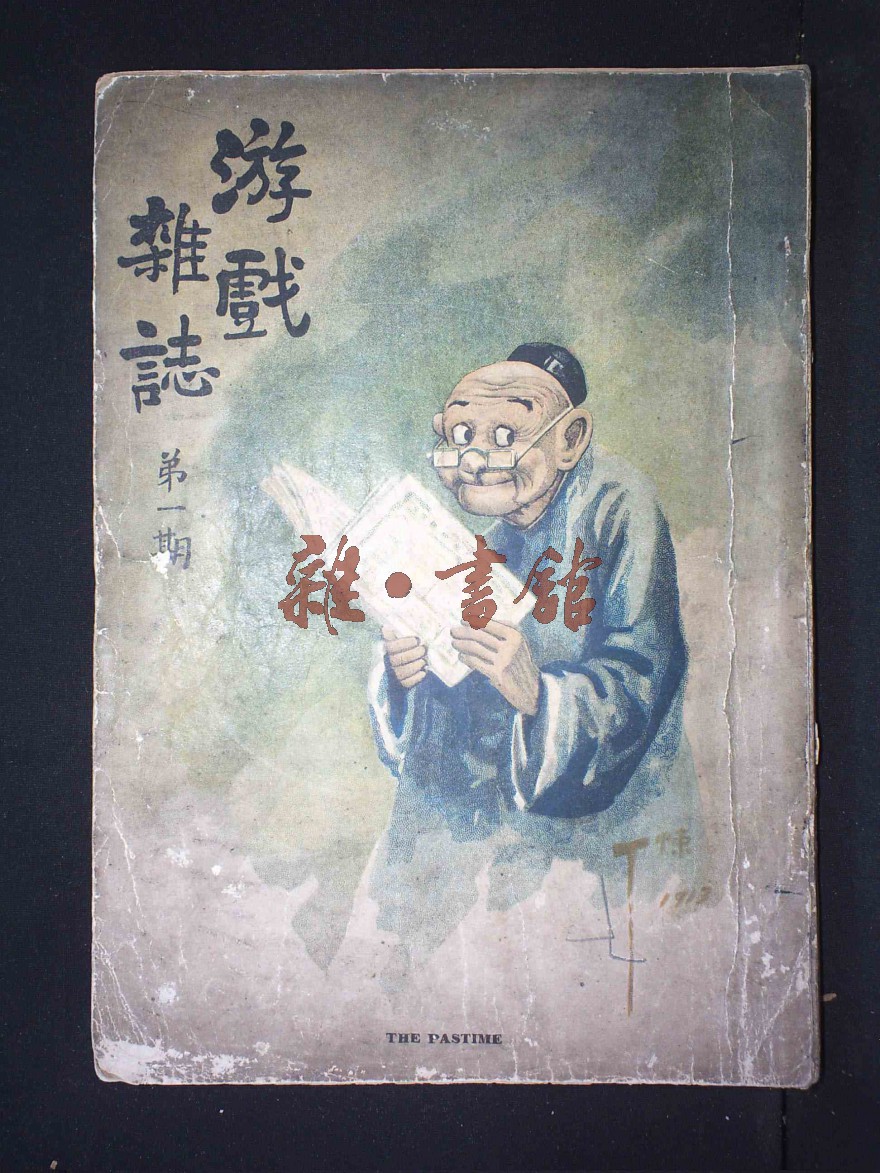 游戲
雜誌
第一期
雜·書館
1913
THE PASTIME